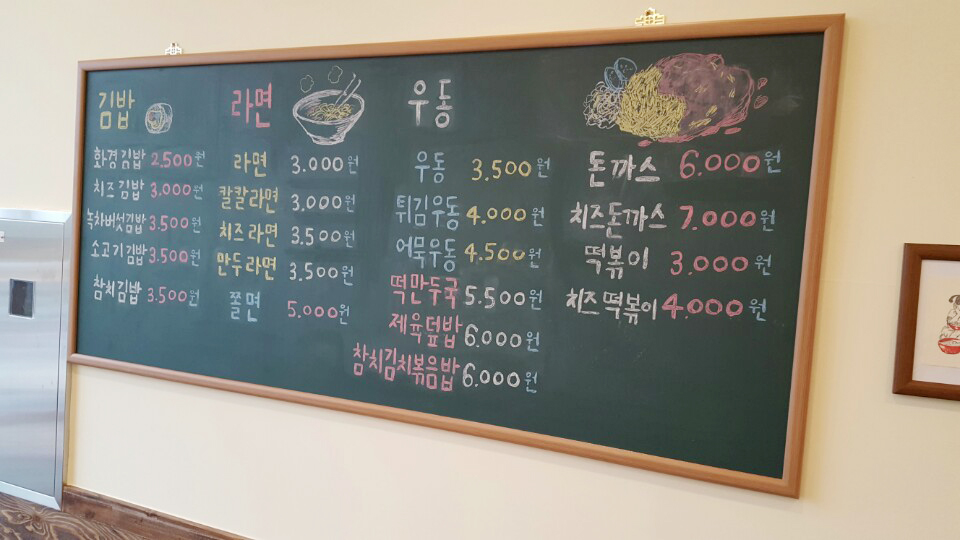 김밥
화경김밥 2.500원
치즈김밥 3.000원
녹차버섯김밥 3.500원
소고기김밥 3.500원
참치김밥 3.500원
라면
라면 3.000원
칼칼라면 3.000원
치즈라면 3.500원
만두라면 3.500원
쫄면 5.000원
우동
우동 3.500원
튀김우동 4.000원
어묵우동 4.500원
떡만두국 5.500원
제육덮밥 6.000원
참치김치볶음밥 6.000원
돈까스 6.000원
치즈돈까스 7.000원
떡볶이 3.000원
치즈떡볶이 4.000원